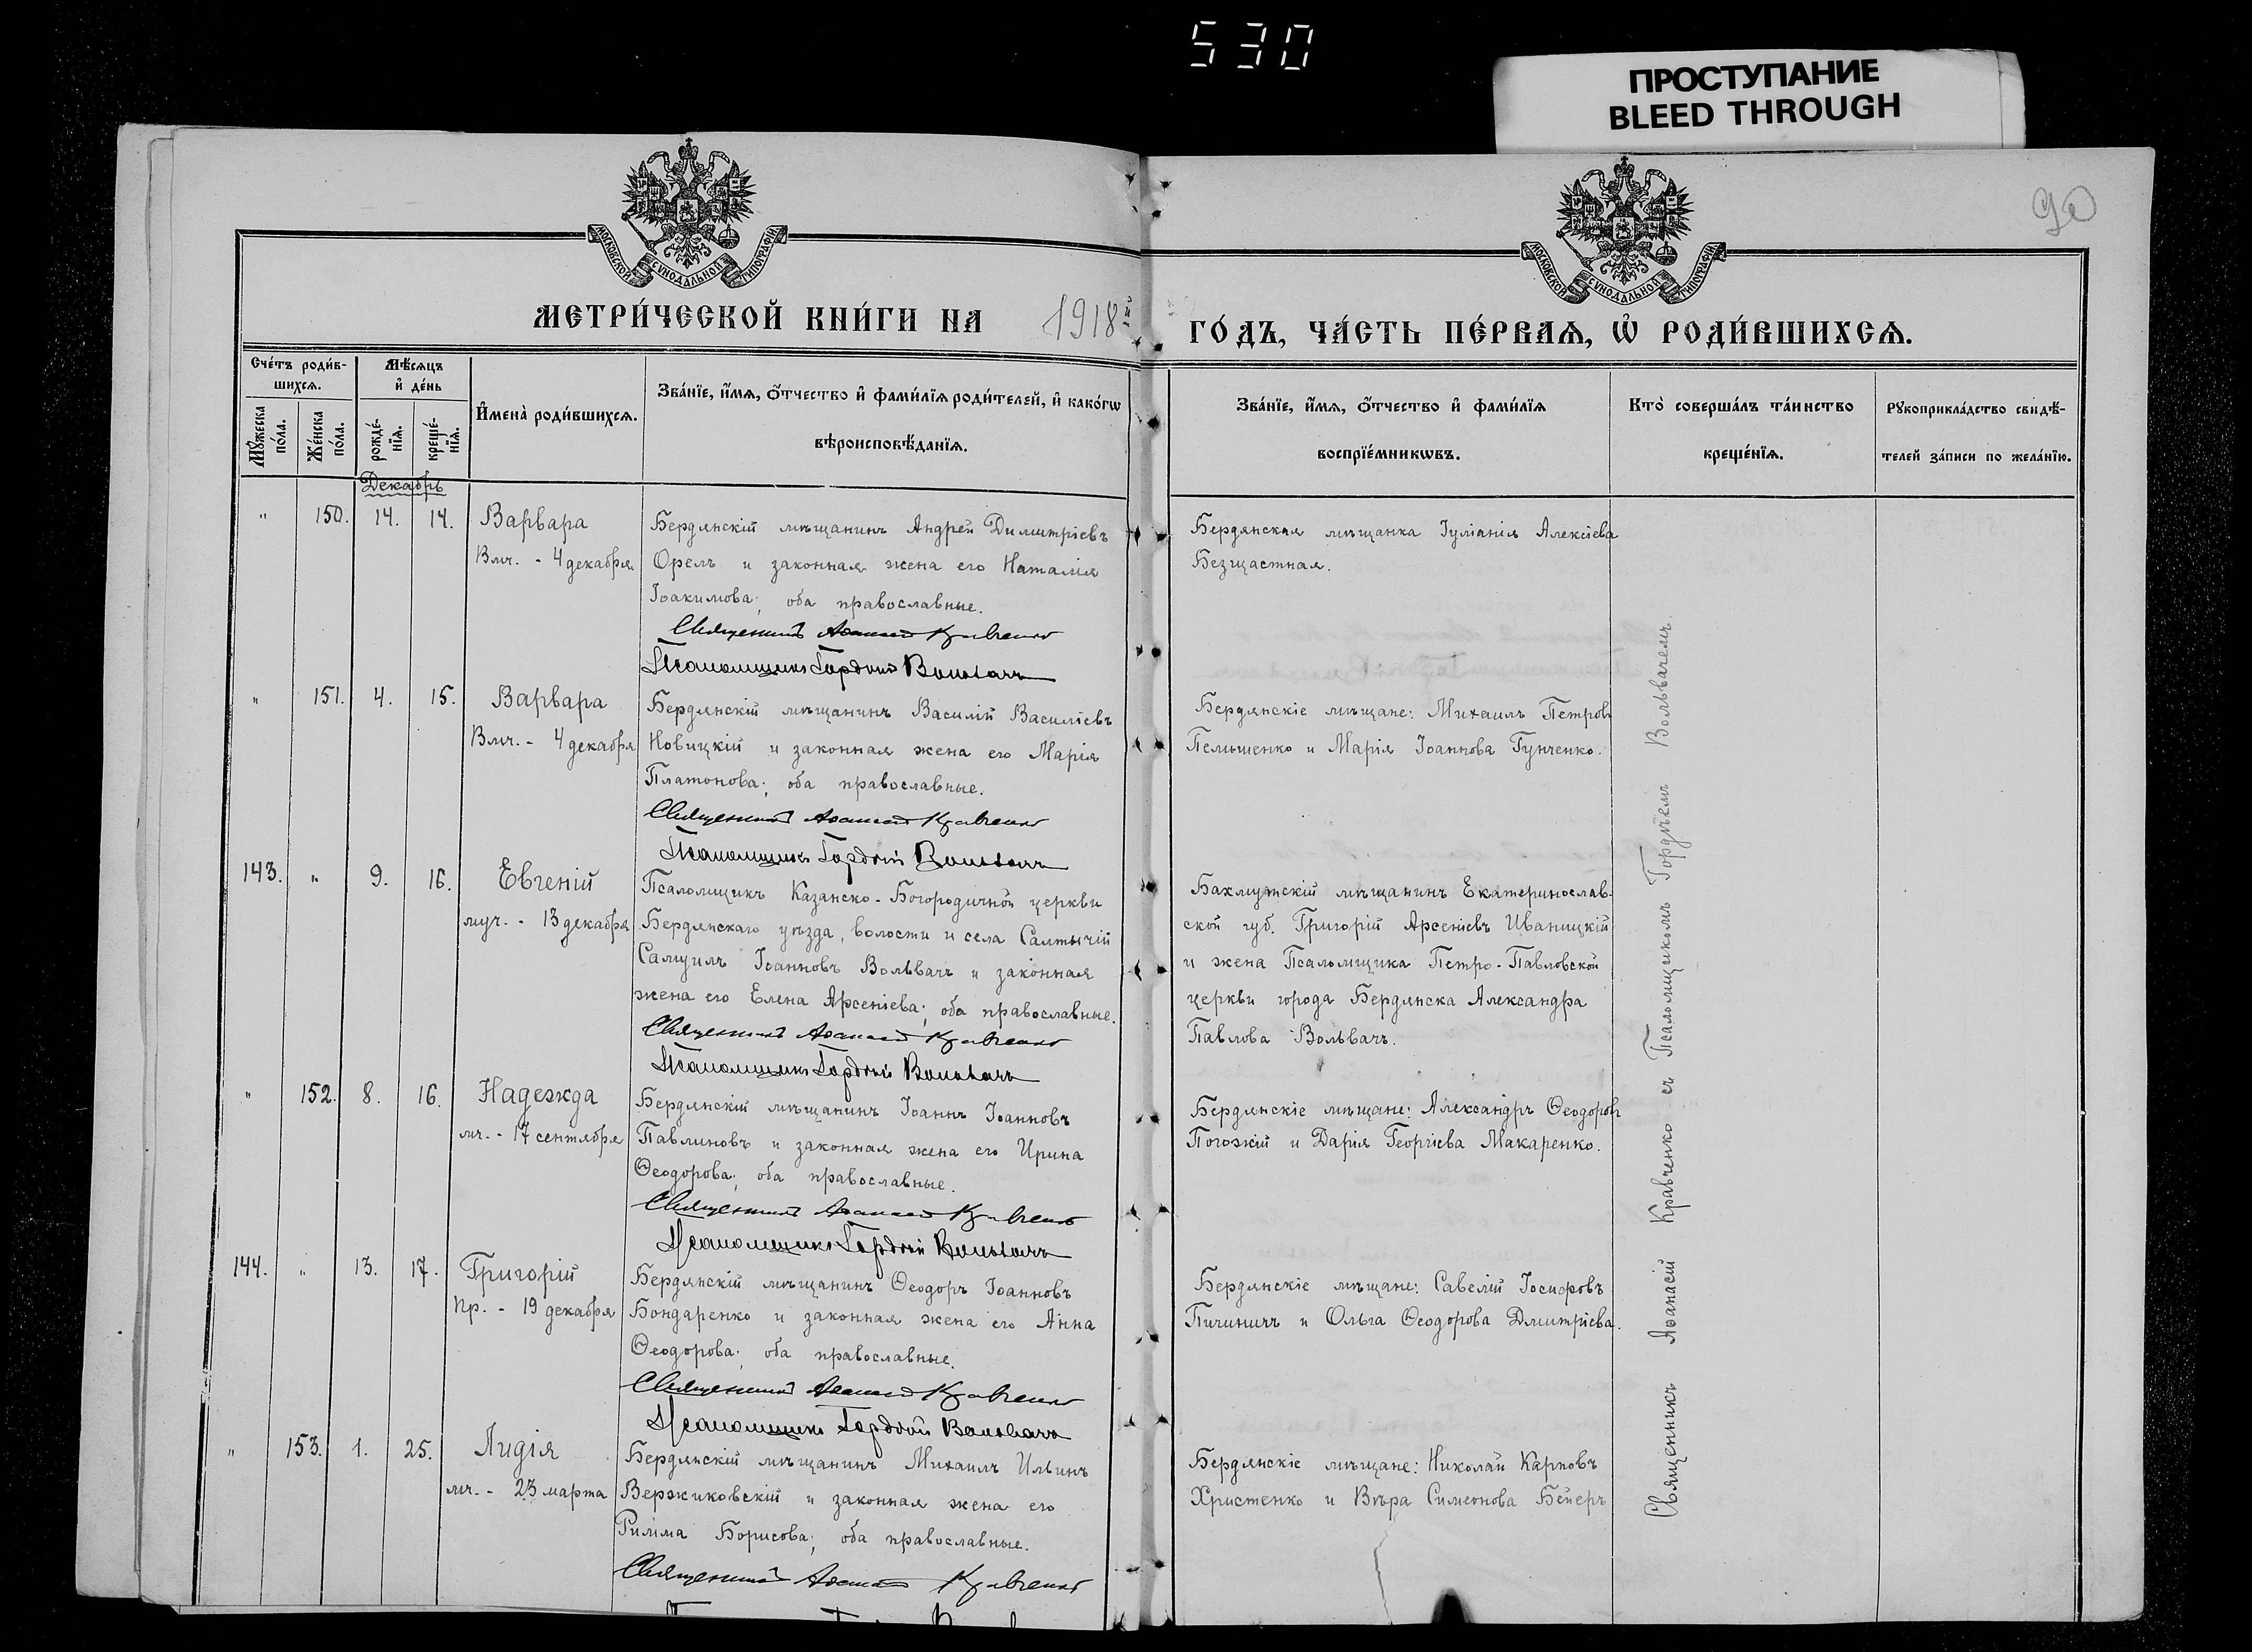 530
ПРОСТУПАНИЕ
BLEED THROUGH
90
МОСКОВСКОЙ СУНОДАЛЬНОЙ ТИПОГРАФІИ
МОСКОВСКОЙ СУНОДАЛЬНОЙ ТИПОГРАФІИ
МЕТРИ́ЧЕСКОЙ КНИ́ГИ НА 1918й ГО́ДЪ, ЧА́СТЬ ПЕ́РВАѦ, Ѡ҆ РОДИ́ВШИХСѦ.
Сче́тъ роди́в-
шихсѧ.
Мѣ́сѧцъ
и҆ де́нь
Мꙋ́жеска
по́ла.
Же́нска
по́ла.
рожде́-
нїѧ.
креще́-
нїѧ.
И҆мена̀ роди́вшихсѧ.
Зва́нїе, и҆́мѧ, о҆́тчество и҆ фами́лїѧ роди́телей, и҆ како́гѡ
вѣроисповѣ́данїѧ.
Зва́нїе, и҆́мѧ, о҆́тчество и҆ фами́лїѧ
воспрїе́мникѡвъ.
Кто̀ соверша́лъ та́инство
креще́нїѧ.
Рꙋкоприкла́дство свидѣ́-
телей за́писи по жела́нїю.
Декабрь
" 150. 14. 14. Варвара
Вмч. - 4 декабря
Бердянскій мѣщанинъ Андрей Димитріевъ
Орелъ и законная жена его Наталія
Іоакимова; оба православные.
Священникъ Аѳанасій Кравченко
Псаломщикъ Гордій Вольвачъ
Бердянская мѣщанка Іуліанія Алексіева
Безщастная.
" 151. 4. 15. Варвара
Вмч. - 4 декабря
Бердянскій мѣщанинъ Василій Василіевъ
Новицкій и законная жена его Марія
Платонова; оба православные.
Священникъ Аѳанасій Кравченко
Псаломщикъ Гордій Вольвачъ
Бердянскіе мѣщане: Михаилъ Петровъ
Пелышенко и Марія Іоаннова Гунченко.
143. " 9. 16. Евгеній
муч. - 13 декабря
Псаломщикъ Казанско-Богородичной церкви
Бердянскаго уѣзда, волости и села Салтычій
Самуилъ Іоанновъ Вольвачъ и законная
жена его Елена Арсеніева; оба православные.
Священникъ Аѳанасій Кравченко
Псаломщикъ Гордій Вольвачъ
Бахмутскій мѣщанинъ Екатеринослав-
ской губ. Григорій Арсеніевъ Иваницкій
и жена Псаломщика Петро-Павловской
церкви города Бердянска Александра
Павлова Вольвачъ.
" 152. 8. 16. Надежда
мч. - 17 сентября
Бердянскій мѣщанинъ Іоаннъ Іоанновъ
Павлиновъ и законная жена его Ирина
Ѳеодорова; оба православные.
Священникъ Аѳанасій Кравченко
Псаломщикъ Гордій Вольвачъ
Бердянскіе мѣщане: Александръ Ѳеодоровъ
Погожій и Дарія Георгіева Макаренко.
144. " 13. 17. Григорій
пр. - 19 декабря
Бердянскій мѣщанинъ Ѳеодоръ Іоанновъ
Бондаренко и законная жена его Анна
Ѳеодорова; оба православные.
Священникъ Аѳанасій Кравченко
Псаломщикъ Гордій Вольвачъ
Бердянскіе мѣщане: Савелій Іосифовъ
Пичиничъ и Ольга Ѳеодорова Дмитріева.
" 153. 1. 25. Лидія
мч. - 23 марта
Бердянскій мѣщанинъ Михаилъ Ильинъ
Вержиковскій и законная жена его
Римма Борисова; оба православные.
Священникъ Аѳанасій Кравченко
Бердянскіе мѣщане: Николай Карповъ
Христенко и Вѣра Симеонова Бейеръ
Священникъ Аѳанасій Кравченко съ Псаломщикомъ Гордѣемъ Вольвачемъ.